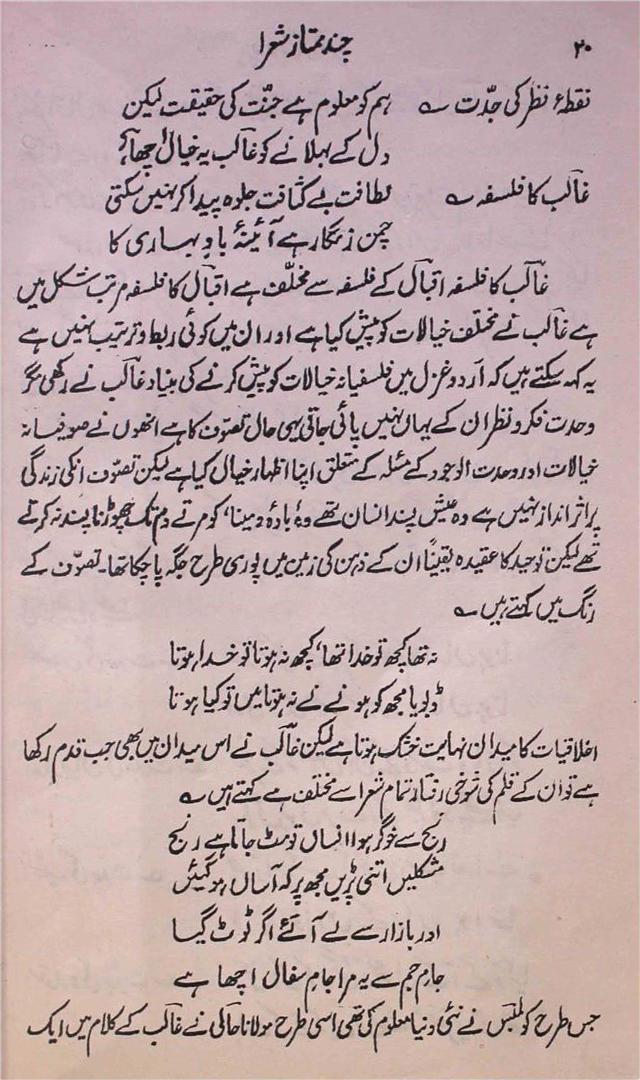 ۲۰ چند ممتاز شعرا
نقطۂ نظر کی جدّت ؎ ہم کو معلوم ہے جنّت کی حقیقت لیکن
دل کے بہلانے کو غالب یہ خیال اچھا ہے
غالب کا فلسفہ ؎ لطافت بے کثافت جلوہ پیدا کر نہیں سکتی
چمن زنگار ہے آئینۂ بادِ بہاری کا
غالب کا فلسفہ اقبال کے فلسفہ سے مختلف ہے اقبال کا فلسفہ مرتب شکل میں
ہے غالب نے مختلف خیالات کو پیش کیا ہے اور ان میں کوئی ربط و ترتیب نہیں ہے
یہ کہہ سکتے ہیں کہ اردو غزل میں فلسفیانہ خیالات کو پیش کرنے کی بنیاد غالب نے رکھی مگر
وحدت فکر و نظر ان کے یہاں نہیں پائی جاتی یہی حال تصوّف کا ہے انھوں نے صوفیانہ
خیالات اور وحدت الوجود کے مسئلہ کے متعلق اپنا اظہار خیال کیا ہے لیکن تصوّف انکی زندگی
پر اثر انداز نہیں ہے وہ عیش پسند انسان تھے وہ ‘بادہ و مینا’ کو مرتے دم تک چھوڑنا پسند نہ کرتے
تھے لیکن توحید کا عقیدہ یقیناً ان کے ذہن کی زمین میں پوری طرح جگہ پا چکا تھا۔ تصوّف کے
رنگ میں کہتے ہیں ؎
نہ تھا کچھ تو خدا تھا، کچھ نہ ہوتا تو خدا ہوتا
ڈبویا مجھ کو ہونے نے نہ ہوتا میں تو کیا ہوتا
اخلاقیات کا میدان نہایت خشک ہوتا ہے لیکن غالب نے اس میدان میں بھی جب قدم رکھا
ہے تو ان کے قلم کی شوخی رفتار تمام شعرا سے مختلف ہے کہتے ہیں ؎
رنج سے خوگر ہوا انساں تو مٹ جاتا ہے رنج
مشکلیں اتنی پڑیں مجھ پر کہ آساں ہو گئیں
اور بازار سے لے آئے اگر ٹوٹ گیا
جامِ جم سے یہ مرا جامِ سفال اچھا ہے
جس طرح کولمبس نے نئی دنیا معلوم کی تھی اسی طرح مولانا حالی نے غالب کے کلام میں ایک